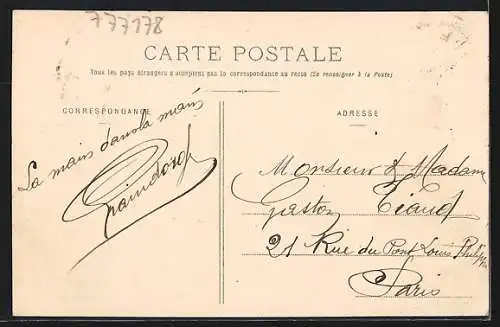 777178
CARTE POSTALE
Tous les pays étrangers n'acceptent pas la correspondance au recto (Se renseigner à la Poste)
CORRESPONDANCE
La main dans la main
Graindorge
ADRESSE
Monsieur & Madame
Gaston
21 Rue du Pont Louis Philippe
Paris